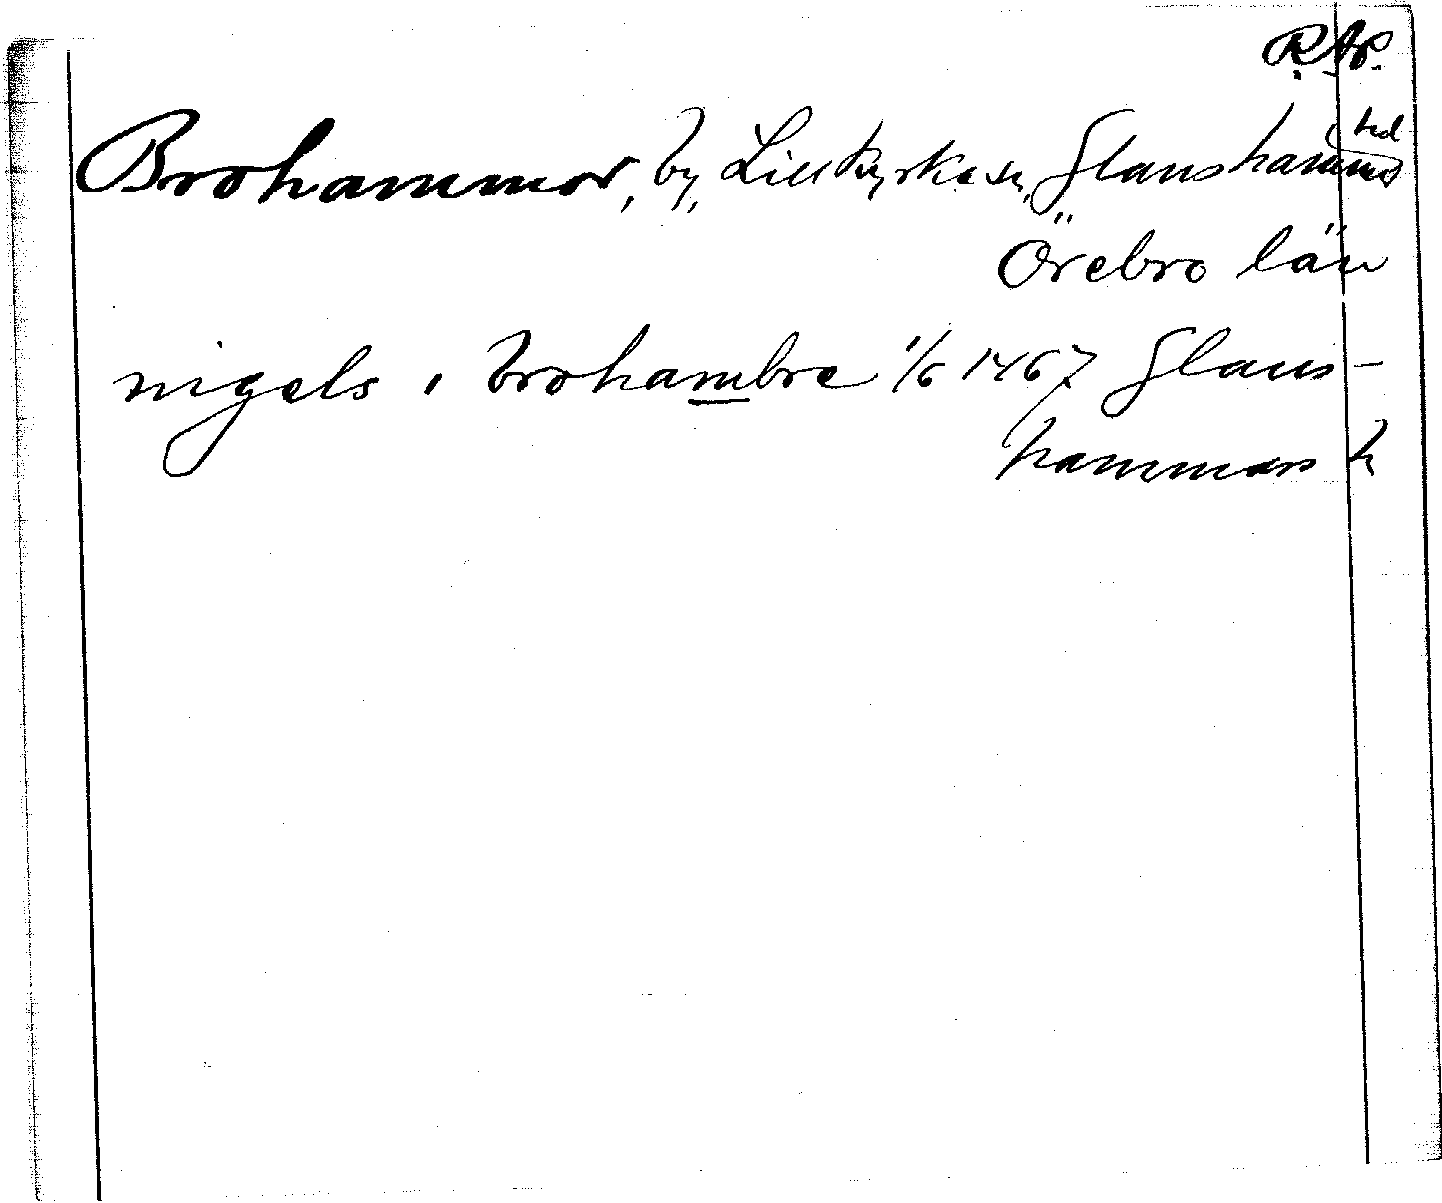 RAP.
Brohammar, by, Lillkyrka sn, Glanshammars hd
Örebro län
nigels i brohambre 1/6 1467 Glans-
hammars h